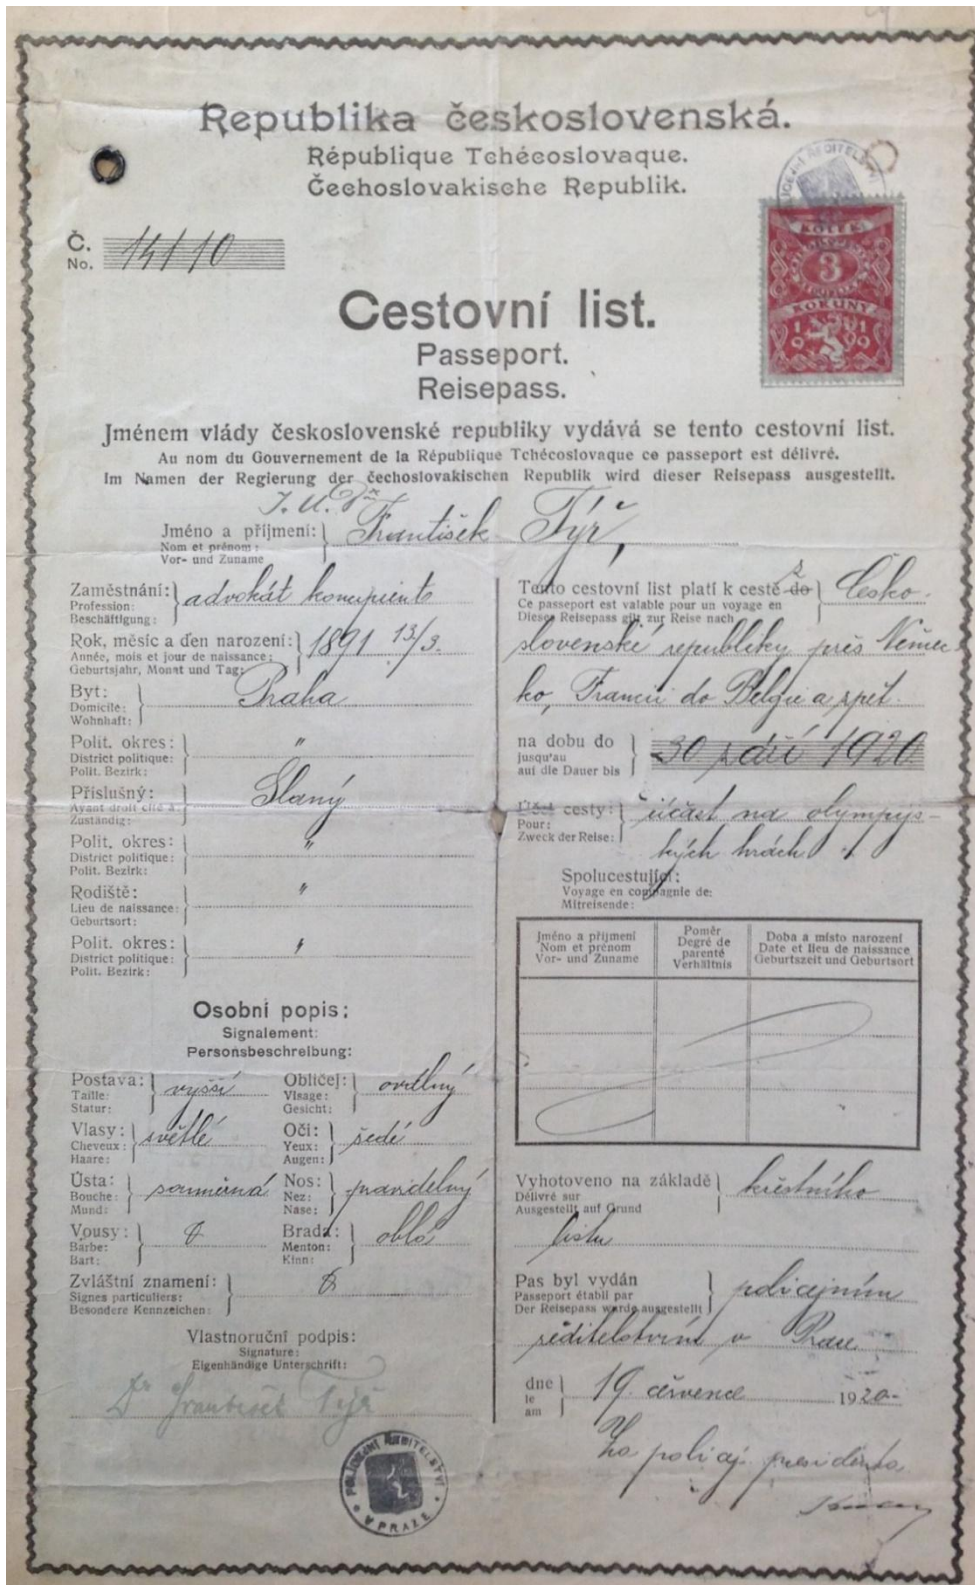 Republika československá.
République Tchécoslovaque.
Čechoslovakische Republik.
Č.
No. 14110
POLICEJNÍ ŘEDITELSTVÍ
KOLEK
3
KORUNY
1919
Cestovní list.
Passeport.
Reisepass.
Jménem vlády československé republiky vydává se tento cestovní list.
Au nom du Gouvernement de la République Tchécoslovaque ce passeport est délivré.
Im Namen der Regierung der čechoslovakischen Republik wird dieser Reisepass ausgestellt.
J. U. Dr
Jméno a příjmení: František Týř,
Nom et prénom:
Vor- und Zuname
Zaměstnání: advokát koncipient
Profession:
Beschäftigung:
Rok, měsíc a den narození: 1891 13/3.
Année, mois et jour de naissance:
Geburtsjahr, Monat und Tag:
Byt: Praha
Domicile:
Wohnhaft:
Polit. okres: "
District politique:
Polit. Bezirk:
Příslušný: Slaný
Ayant droit cité à:
Zuständig:
Polit. okres: "
District politique:
Polit. Bezirk:
Rodiště: "
Lieu de naissance:
Geburtsort:
Polit. okres: "
District politique:
Polit. Bezirk:
Osobní popis:
Signalement:
Personsbeschreibung:
Postava: vyšší Obličej: oválný
Taille: Visage:
Statur: Gesicht:
Vlasy: světlé Oči: šedé
Cheveux: Yeux:
Haare: Augen:
Ústa: souměrná Nos: pravidelný
Bouche: Nez:
Mund: Nase:
Vousy: Brada: oblá
Barbe: Menton:
Bart: Kinn:
Zvláštní znamení:
Signes particuliers:
Besondere Kennzeichen:
Vlastnoruční podpis:
Signature:
Eigenhändige Unterschrift:
Dr František Týř
POLICEJNÍ ŘEDITELSTVÍ
V PRAZE
Tento cestovní list platí k cestě do z Česko-
Ce passeport est valable pour un voyage en
Dieser Reisepass gilt zur Reise nach
slovenské republiky přes Němec-
ko, Francii do Belgie a zpět.
na dobu do 30 září 1920
jusqu'au
auf die Dauer bis
Účel cesty: účast na olympij-
Pour:
Zweck der Reise:
ských hrách
Spolucestující:
Voyage en compagnie de:
Mitreisende:
Jméno a příjmení
Nom et prénom
Vor- und Zuname
Poměr
Degré de
parenté
Verhältnis
Doba a místo narození
Date et lieu de naissance
Geburtszeit und Geburtsort
Vyhotoveno na základě křestního
Délivré sur
Ausgestellt auf Grund
listu
Pas byl vydán policejním
Passeport établi par
Der Reisepass wurde ausgestellt
ředitelstvím v Praze
dne 19. července 1920-
le
am
Za policej. presidenta